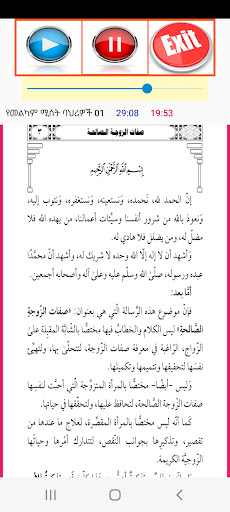 Exit
የመልካም ሚስት ባህሪዎች 01 29:08 19:53
صفات الزوجة الصالحة ٣
بِسْمِ اللَّهِ الرَّحْمَنِ الرَّحِيمِ
إنَّ الحمد لله، نحمده، ونستعينه، ونستغفره، ونتوب إليه،
ونعوذ بالله من شرور أنفسنا وسيِّئات أعمالنا، من يهده الله فلا
مضلَّ له، ومن يضلل فلا هادي له.
وأشهد أن لا إله إلَّا الله وحده لا شريك له، وأشهد أنَّ محمَّدًا
عبده ورسوله، صلَّى الله وسلَّم عليه وعلى آله وأصحابه أجمعين.
أمَّا بعد:
فإنَّ موضوع هذه الرِّسالة الَّتي هي بعنوان: «صفات الزَّوجة
الصَّالحة» ليس الكلام والخطاب فيها مختصًّا بالشَّابَّة المقبلة على
الزَّواج، الرَّاغبة في معرفة صفات الزَّوجة، لتتحلَّى بها، ولتهيِّئ
نفسها لتحقيقها وتتميمها وتكميلها.
وليس -أيضًا- مختصًّا بالمرأة المتزوِّجة الَّتي أحبَّت لنفسها
صفات الزَّوجة الصَّالحة، لتحافظ عليها، ولتحقِّقها في حياتها.
كما أنَّه ليس مختصًّا بالمرأة المقصِّرة، لعلاج ما عندها من
تقصير، وتذكيرها بجوانب النَّقص، لتتدارك أمرها وحياتها
الزَّوجيَّة الكريمة.